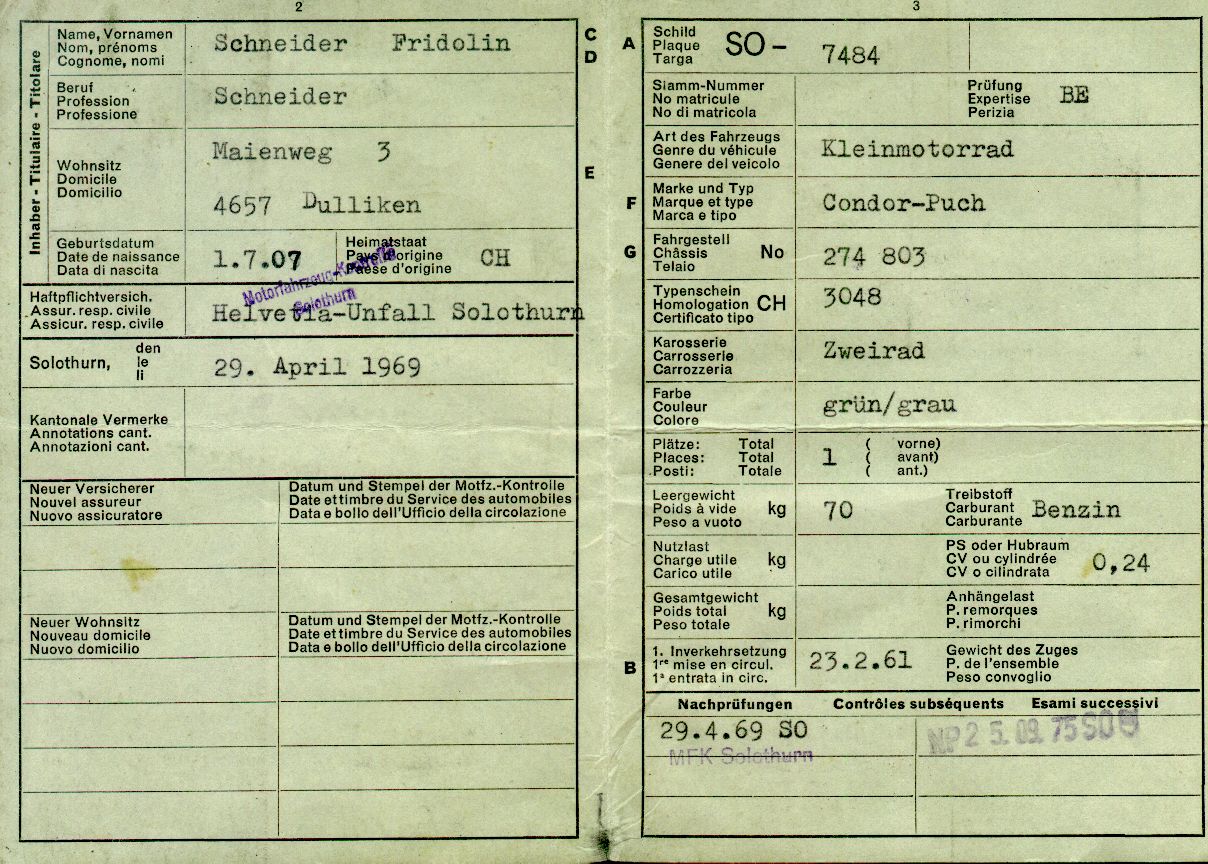 2
Inhaber - Titulaire - Titolare
Name, Vornamen
Nom, prénoms
Cognome, nomi
Schneider Fridolin
C
D
Beruf
Profession
Professione
Schneider
Wohnsitz
Domicile
Domicilio
Maienweg 3
4657 Dulliken
E
Geburtsdatum
Date de naissance
Data di nascita
1.7.07
Heimatstaat
Pays d'origine
Paese d'origine
CH
Motorfahrzeug-Kontrolle
Solothurn
Haftpflichtversich.
Assur. resp. civile
Assicur. resp. civile
Helvetia-Unfall Solothurn
Solothurn,
den
le
li
29. April 1969
Kantonale Vermerke
Annotations cant.
Annotazioni cant.
Neuer Versicherer
Nouvel assureur
Nuovo assicuratore
Datum und Stempel der Motfz.-Kontrolle
Date et timbre du Service des automobiles
Data e bollo dell'Ufficio della circolazione
Neuer Wohnsitz
Nouveau domicile
Nuovo domicilio
Datum und Stempel der Motfz.-Kontrolle
Date et timbre du Service des automobiles
Data e bollo dell'Ufficio della circolazione
3
A
Schild
Plaque
Targa
SO - 7484
Stamm-Nummer
No matricule
No di matricola
Prüfung
Expertise
Perizia
BE
Art des Fahrzeugs
Genre du véhicule
Genere del veicolo
Kleinmotorrad
F
Marke und Typ
Marque et type
Marca e tipo
Condor-Puch
G
Fahrgestell
Châssis No
Telaio
274 803
Typenschein
Homologation CH
Certificato tipo
3048
Karosserie
Carrosserie
Carrozzeria
Zweirad
Farbe
Couleur
Colore
grün/grau
Plätze: Total
Places: Total
Posti: Totale
1
( vorne)
( avant)
( ant.)
Leergewicht
Poids à vide kg
Peso a vuoto
70
Treibstoff
Carburant
Carburante
Benzin
Nutzlast
Charge utile kg
Carico utile
PS oder Hubraum
CV ou cylindrée
CV o cilindrata
0,24
Gesamtgewicht
Poids total kg
Peso totale
Anhängelast
P. remorques
P. rimorchi
B
1. Inverkehrsetzung
1re mise en circul.
1a entrata in circ.
23.2.61
Gewicht des Zuges
P. de l'ensemble
Peso convoglio
Nachprüfungen Contrôles subséquents Esami successivi
29.4.69 SO
MFK Solothurn
NP 2 5. 09. 75 SO